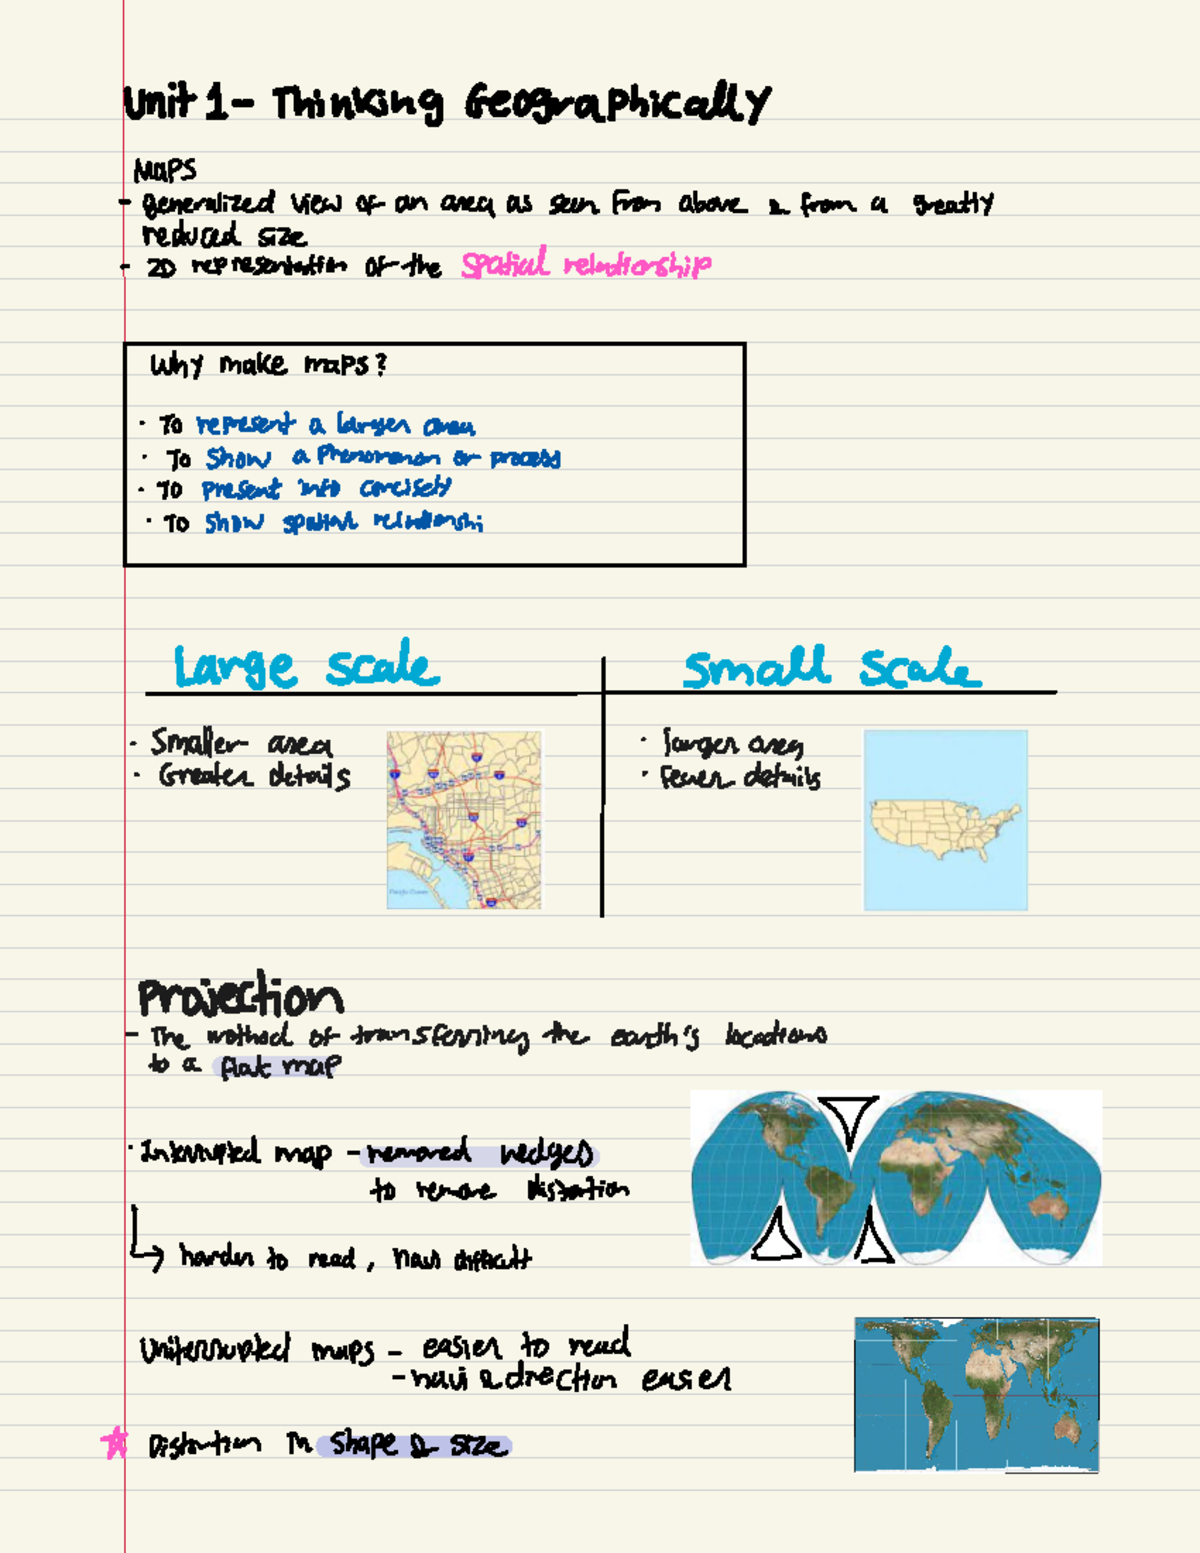 Unit 1 - Thinking Geographically
Maps
- generalized view of an area as seen from above & from a greatly
reduced size
- 2D representation of the spatial relationship
Why make maps?
· To represent a larger area
· To show a phenomenon or process
· To present info concisely
· To show spatial relationshi
Large scale
Small scale
· Smaller area
· Greater details
Pacific Ocean
· larger area
· Fewer details
Projection
- The method of transferring the earth's locations
to a flat map
· Interrupted map - removed wedges
to remove distortion
harder to read, navi difficult
Uniterrupted maps - easier to read
- navi & direction easier
Distortion in shape & size